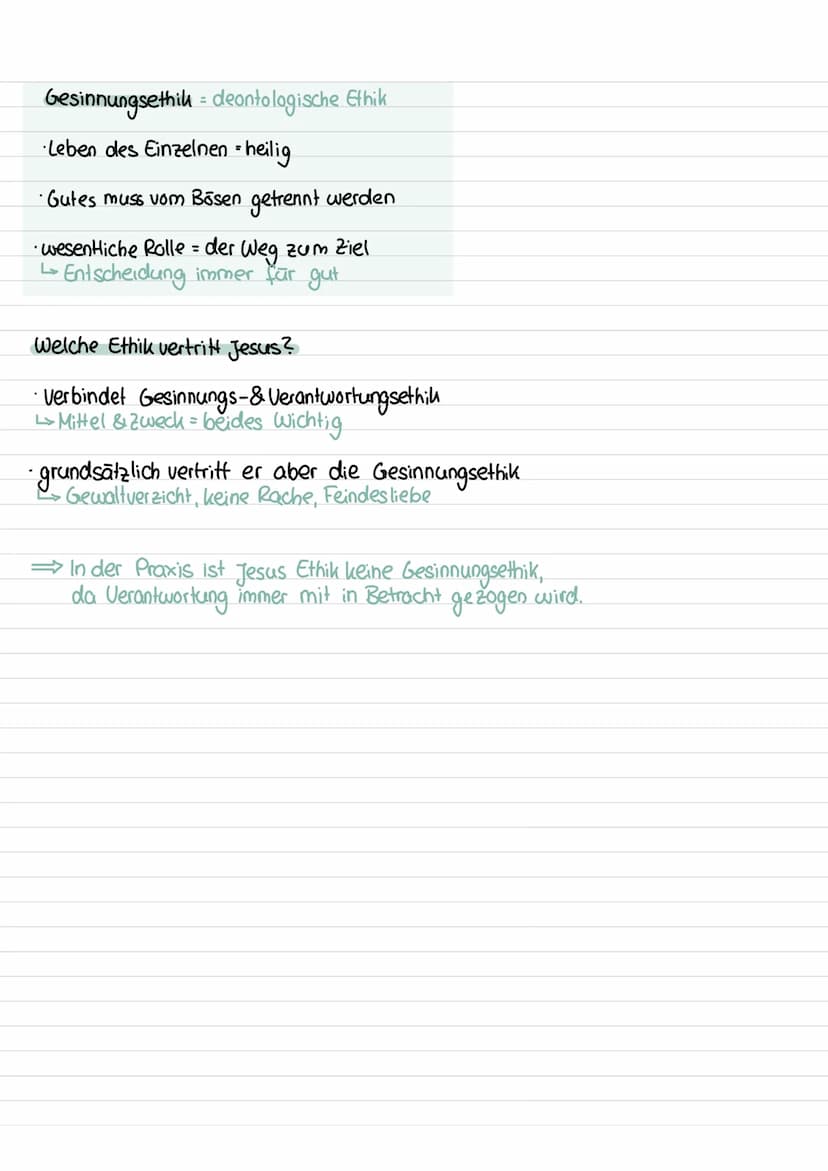 Gesinnungsethik = deontologische Ethik
· Leben des Einzelnen = heilig
· Gutes muss vom Bösen getrennt werden
· wesentliche Rolle = der Weg zum Ziel
↳ Entscheidung immer für gut
Welche Ethik vertritt Jesus?
· verbindet Gesinnungs-& Verantwortungsethik
↳ Mittel & Zweck = beides Wichtig
· grundsätzlich vertritt er aber die Gesinnungsethik
↳ Gewaltverzicht, keine Rache, Feindesliebe
⇒ In der Praxis ist Jesus Ethik keine Gesinnungsethik,
da Verantwortung immer mit in Betracht gezogen wird.